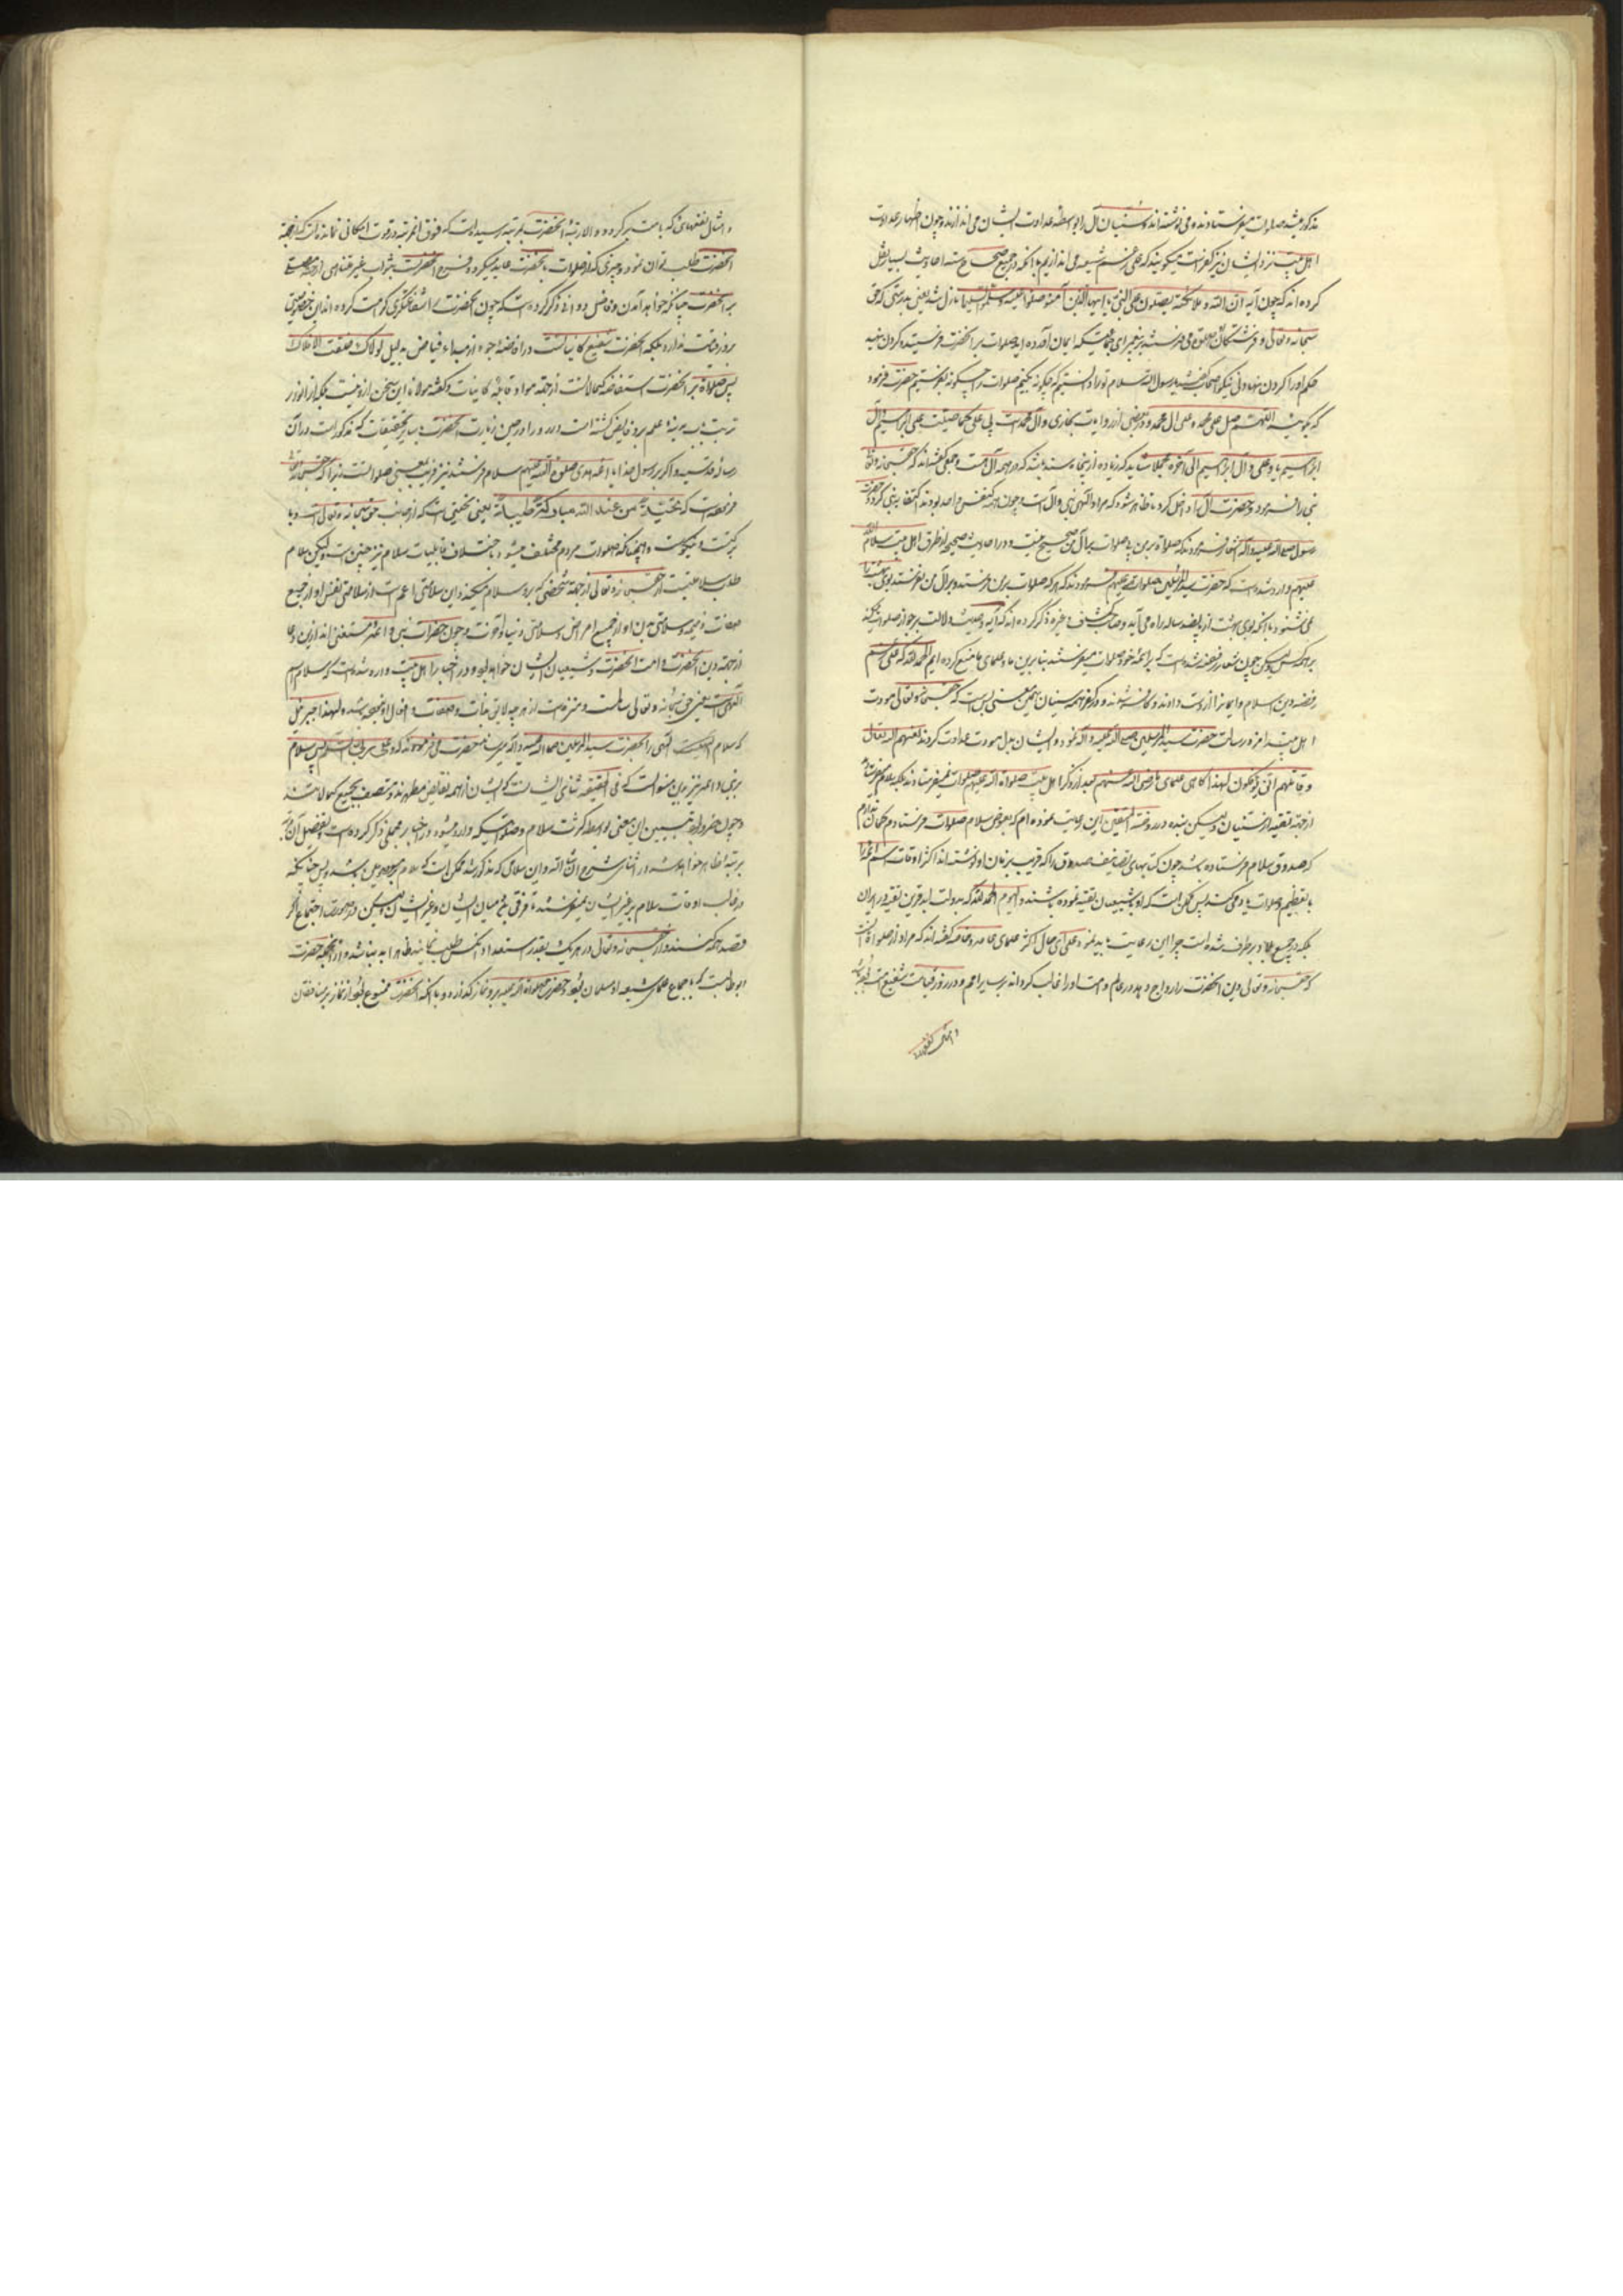 مذکور میشد صلوات میفرستادند و می نوشته اند و سنیان آل را بواسطه عداوت ایشان می اندازند و چون اظهار عداوت
اهل بیت نزد ایشان نیز کفر است میگویند که علی رغم شیعه می اندازیم با آنکه در جمیع صحاح سته احادیث بسیار نقل
کرده اند که چون آیه ان الله و ملائکته یصلون علی النبی یا ایها الذین آمنوا صلوا علیه و سلموا تسلیما نازل شد یعنی بدرستی که حق
سبحانه و تعالی و فرشتگان او صلوة می فرستند بر پیغمبر ای جماعتیکه ایمان آورده اید صلوات بر آنحضرت فرستید و گردن نهید
حکم او را گردن نهادنی نیکو صحابه گفتند یا رسول الله سلام تو را دانستیم که چگونه بکنیم صلوات را چگونه بفرستیم حضرت فرمود
که بگویید اللهم صل علی محمد و علی آل محمد و در بعضی از روایات بخاری و آل محمد است بی علی کما صلیت علی ابراهیم و آل
ابراهیم یا و علی آل ابراهیم الی آخره مجملا شاید که زیاده از پنجاه سند باشد که در همه آل هست و جمعی گفته اند که حق سبحانه و تعالی
نبی را فرمود و حضرت آل را داخل کرد تا ظاهر شود که مراد الهی نبی و آل است و چون همه یک نفس واحد بودند اکتفا به نبی کرد و حضرت
رسول صلی الله علیه و آله اشعار فرمودند که صلوات بر من بی صلوات بر آل من صحیح نیست و در احادیث صحیحه از طرق اهل بیت سلام الله
علیهم وارد شده است که حضرت سید المرسلین صلوات الله علیهم فرمودند که هر که صلوات بر من فرستد و بر آل من نفرستد بوی بهشت را
نمی شنود با آنکه بوی بهشت از پانصد ساله راه می آید و صاحب کشاف و غیره ذکر کرده اند که آیه و حدیث دلالت بر جواز صلوات میکند
بر همه کس لیکن چون شعار رفضه شده است که بر ائمه خود صلوات میفرستند بنا برین ما و علمای ما منع کرده ایم الحمد لله که علی رغم
رفضه دین اسلام و ایمان را از دست دادند و کافر شدند و در کفر همه سنیان همین معنی بس است که حق سبحانه و تعالی مودت
اهل بیت را مزد رسالت حضرت سید المرسلین صلی الله علیه و آله نمود و ایشان بدل مودت عداوت کردند لعنهم الله تعالی
و قاتلهم انی یؤفکون لهذا گاهی علمای ما رضی الله عنهم بعد از ذکر اهل بیت صلوات الله علیهم صلوات نمیفرستادند بلکه سلام میفرستادند
از جهت تقیه از سنیان و لیکن بنده در روضة المتقین این رعایت نموده ام که بعوض سلام صلوات فرستادم و گمان ندارم
که صدوق سلام فرستاده باشد چون کتابهای تصانیف صدوق را که قریب بزمان او نوشته اند اکثر اوقات اسم ائمه را
با تعظیم و صلوات یاد می کند پس ممکن است که او یا شیعیان تقیه نموده باشند و الیوم الحمد لله که بدولت ابد قرین تقیه در ایران
بلکه در جمیع بلاد بر طرف شده است چرا این رعایت باید نمود و علی ای حال اکثر علمای عامه و خاصه گفته اند که مراد از صلوات آنست
که حق سبحانه و تعالی دین آنحضرت را رواج دهد در عالم و امت او را غالب گرداند بر سایر امم و در روز قیامت شفیع امت
و امثال
و امثال اینها که با امت بر کرده و الا رتبه آنحضرت بمرتبه رسیده است که فوق آن مرتبه در قوت امکانی نمانده است که از جهت
آنحضرت طلب توان نمود و چیزی که از صلوات بآنحضرت عاید میگردد فرح آنحضرت بثواب غیر متناهی
بر آنحضرت چنانکه خواهد آمدن و فاضل دوانی ذکر کرده است که چون آنحضرت را شفاعت کبری کرامت کرده اند این خصوصیت
بروز قیامت ندارد بلکه آنحضرت شفیع کاینات است در افاضه وجود از مبداء فیاض بدلیل لولاک لما خلقت الافلاک
پس صلوات بر آنحضرت استفاضه کمالات است از جهت مواد قابله کاینات و گفته مولانا این سخن از و نیست بلکه از انور
تربت باب مدینه علم برو فایض گشته است در حین زیارت آنحضرت با سایر تحقیقات که مذکور است در آن
رساله قدسیه و اگر بر رسول خدا یا ائمه هدی صلوات الله علیهم سلام فرستند نیز قریب بمعنی صلوات است زیرا که حق سبحانه و تعالی
فرموده است که تحیة من عند الله مبارکة طیبة یعنی تحیتی است که از جانب حق سبحانه و تعالی است و با
برکت و نیکوست و همچنانکه صلوات مردم مختلف میشود باختلاف قابلیات سلام نیز چنین است و لیکن سلام
طلب سلامتیست از حق سبحانه و تعالی از جهت شخصی که برو سلام میکنند و این سلامتی اعم است از سلامتی نفس او از جمیع
صفات ذمیمه و سلامتی بدن او از جمیع امراض و سلامتی دنیا و آخرت و چون حضرات نبی و ائمه مستغنی اند ازین دعا
از جهت دین آنحضرت و امت آنحضرت و شیعیان ایشان خواهد بود و در اخبار اهل بیت وارد شده است که سلام اسم
الهی است یعنی حق سبحانه و تعالی سالمست و منزه است از هر چه لایق ذات و صفات و افعال او نباشد و لهذا جبرئیل
که سلام الهی را بحضرت سید المرسلین صلی الله علیه و آله میرسانید حضرت می فرمودند که و علی ربی السلام پس سلام
بر نبی و ائمه نیز باین معنی است که فی الحقیقه ثنای ایشانست که ایشان از همه نقایص مطهرند و متصف بجمیع کمالاتند
و چون ضرور بود تبیین این معنی بواسطه کثرت سلام و صلواتیکه وارد میشود در اخبار مجملی ذکر کرده است و تفصیل آن
مرتبه اظهار خواهد شد در اثنای شرح ان شاء الله و این سلامی که مذکور شد ممکن است که سلام بر مومنین باشد پس چنانکه
در غالب اوقات سلام بر غیر ایشان نمیفرستند تا فرقی باشد میان ایشان و غیر ایشان و لیکن در صورت اجتماع اگر
قصد همه کنند و از حق سبحانه و تعالی در هر یک بقدر استعداد آنکس طلب نمایند ظاهرا بد نباشد و از آنجمله حضرت
ابوطالبست که باجماع علمای شیعه او مسلمان بود و حضرت صلوات الله علیه برو نماز گذارده و با آنکه آنحضرت ممنوع بود از نماز بر منافقان